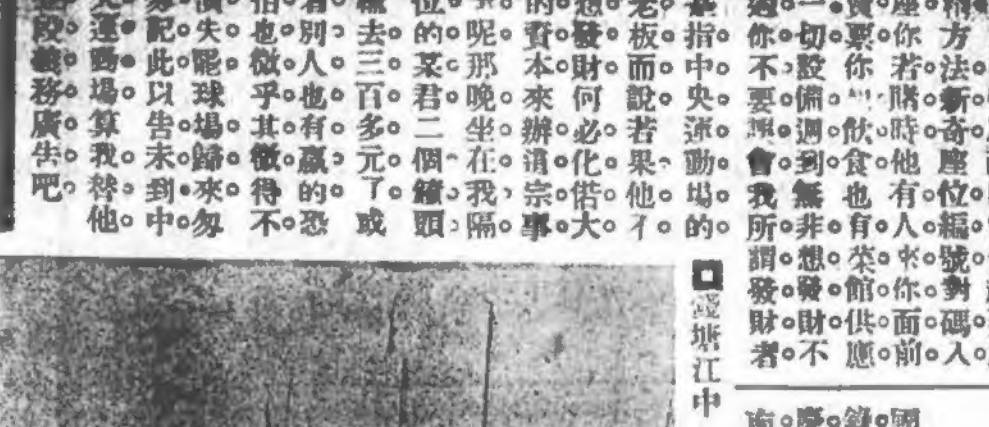 方法新奇座位編號對碼入
座你若賭時他有人來你面前
賣票你飲食也有菜館供應
一切設備週到無非想發財不
過你不要誤會我所謂發財者
指中央運動場的
老板而說若果他
想發財何必化偌大
的資本來辦這宗事
呢那晚坐在我隔
位的某君二個鐘頭
去三百多元了或
看別人也有贏的恐
怕也微乎其微得不
償失罷球場歸來匆
匆記此以告未到中
央運動場算我替他
段義務廣告吧
錢塘江中